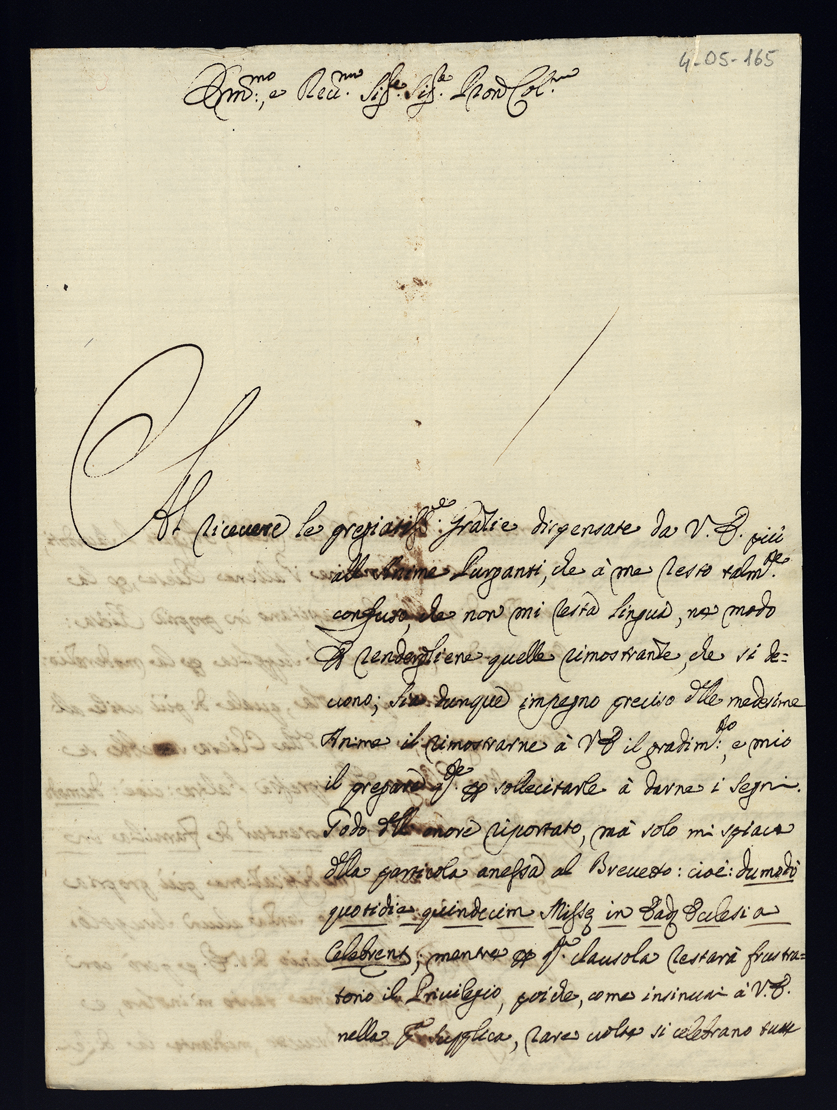 4-05-165
Ill.mo, e Rev.mo Sig.re Sig.re Pron Col.mo
Al riceuere le pregiatiss.e gratie dispensate da V.S. più
all'Anime Purganti, che à me resto talm.te
confuso, che non mi resta lingua, ne modo
di rendergliene quelle rimostranze, che si de=
uono; Sia dunque impegno preciso delle medesime
Anime il rimostrarne à V.S. il gradim.to, e mio
il pregare q.te per sollecitarle à darne i segni.
Godo dell'onore riportato, mà solo mi spiace
della particola anessa al Breuetto: cioè: dumodo
quotidie quindecim Missę in Eadę Ecclesia
Celebrent; mentre per q.ta clausola restarà frustra=
torio il Priuilegio, poiche, come insinuai à V.S.
nella p.a supplica, rare uolte si celebrano tutte